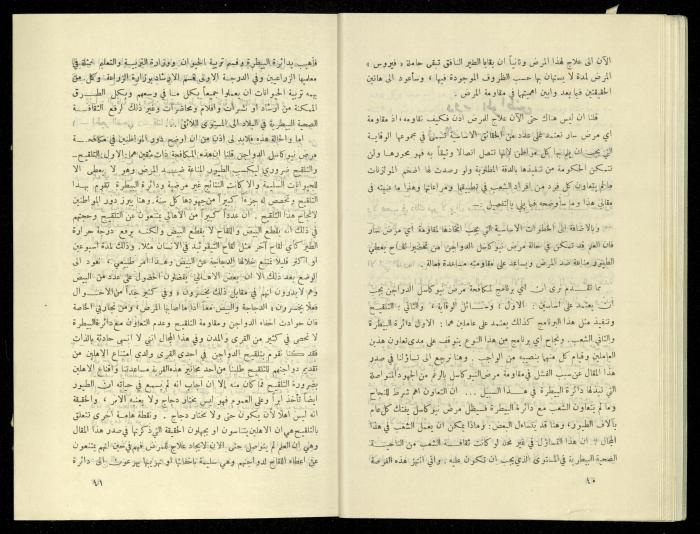 الآن الى علاج لهذا المرض وثانياً ان بقايا الطير النافق تبقى حاملة « فيروس »
المرض لمدة لا يستهان بها حسب الظروف الموجودة فيها ، وسأعود الى هاتين
الحقيقتين فيما بعد وابين اهميتها في مقاومة المرض .
قلنا ان ليس هناك حتى الآن علاج للمرض اذن فكيف نقاومه ، اذ مقاومة
اي مرض سار تعتمد على عدد من الحقائق الاساسية التي هي في مجموعها الوقاية
التي يجب ان يلم بها كل مواطن لانها تتصل اتصالا وثيقاً به فهو محررها ولن
تتمكن الحكومة من تنفيذها بالدقة المطلوبة ولو رصدت لها اضخم الموازنات
مالم يتعاون كل فرد من افراد الشعب في تطبيقها ومراعاتها وهذا ما عنيته في
مقالي هذا وما سأوضحه فيما يلي بالتفصيل .
وبالاضافة الى الخطوات الاساسية التي يجب اتخاذها لمقاومة أي مرض سار
فان العلم قد تمكن في حالة مرض نيوكاسل الدواجن من تحضير لقاح يعطي
الطيور مناعة ضد المرض ويساعد على مقاومته مساعدة فعالة .
مما تقدم نرى ان أي برنامج لمكافحة مرض نيوكاسل الدواجن يجب
أن يعتمد على اساسين : الاول ، وسائل الوقاية ، والثاني ، التلقيح
وتنفيذ مثل هذا البرنامج كذلك يعتمد على عاملين هما : الاول دائرة البيطرة
والثاني الشعب . ونجاح اي برنامج من هذا النوع يتوقف على مدى تعاون هذين
العاملين وقيام كل منهما بنصيبه من الواجب . وهنا نرجع الى تساؤلنا في صدر
هذا المقال عن سبب الفشل في مقاومة مرض النيوكاسل بالرغم من الجهود المتواصلة
التي تبذلها دائرة البيطرة في هذا السبيل ... ان التعاون اهم شرط للنجاح
وما لم يتعاون الشعب مع دائرة البيطرة فسيظل مرض نيوكاسل يفتك كل عام
بآلاف الطيور ، وهنا قد يتساءل البعض : وماذا يمكن ان يعمل الشعب في هذا
المجال ؟ ان هذا التساؤل في غير محله لو كانت ثقافة الشعب من الناحية
الصحية البيطرية في المستوى الذي يجب ان تكون عليه . واني انتهز هذه الفرصة
٤٠
فأهيب بدائرة البيطرة وقسم تربية الحيوان ووزارة التربية والتعليم ممثلة في
معلميها الزراعيين وفي الدرجة الاولى قسم الارشاد بوزارة الزراعة وكل من
يهمه تربية الحيوانات ان يعملوا جميعاً بكل ما في وسعهم وبكل الطرق
الممكنة من ارشاد او نشرات وافلام ومحاضرات وغير ذلك لرفع الثقافة
الصحية البيطرية في البلاد الى المستوى اللائق .
اما والحالة هذه فلابد لي اذن من ان اوضح دور المواطنين في مكافحة
مرض نيوكاسل الدواجن . قلنا ان هذه المكافحة ذات شقين هما : الاول التلقيح
والتلقيح ضروري ليكسب الطيور المناعة ضد المرض وهو لا يعطى الا
للحيوانات السليمة والا كانت النتائج غير مرضية ودائرة البيطرة تقوم بهذا
التلقيح وتخصص له جزءاً كبيراً من جهودها كل سنة . وهنا يبرز دور المواطنين
لانجاح هذا التلقيح . ان عدداً كبيراً من الاهالي يمتنعون عن التلقيح وحجتهم
في ذلك انه يقطع البيض واللقاح لا يقطع البيض ولكنه يرفع درجة حرارة
الطير كأي لقاح آخر مثل لقاح التيفوئيد في الانسان مثلا ، وذلك لمدة اسبوعين
او اكثر قليلا تمتنع خلالها الدجاجة عن البيض وهذا امر طبيعي ، تعود الى
الوضع بعد ذلك الا ان بعض الاهالي يفضلون الحصول على عدد من البيض
وهم لا يدرون انهم في مقابل ذلك يخسرون ، وفي كثير جداً من الاحوال
فعلا يخسرون ، الدجاجة والبيض معاً اذا ما اصابها المرض ، ومن تجاربي الخاصة
فان حوادث اخفاء الدواجن ومقاومة التلقيح وعدم التعاون مع دائرة البيطرة
لا تحصى في كثير من القرى والمدن وفي هذا المجال انى لا انسى حادثة بالذات
فقد كنا نقوم بتلقيح الدواجن في احدى القرى ولدى امتناع الاهلين من
تقديم دواجنهم للتلقيح طلبنا من احد مخاتير هذه القرية مساعدتنا واقناع الاهلين
بضرورة التلقيح فما كان منه إلا ان اجاب انه لم يسمع في حياته ان الطيور
ايضاً تأخذ ابراً وعلى العموم فهو ليس مختار دجاج ولا يعنيه الأمر ، والحقيقة
انه ليس اهلا لأن يكون حتى ولا مختار دجاج . ونقطة هامة اخرى تتعلق
بالتلقيح هي ان الاهلين يتناسون او يجهلون الحقيقة التي ذكرتها في صدر هذا المقال
وهي ان العلم لم يتوصل حتى الآن لايجاد علاج للمرض فهم في حين انهم يمتنعون
عن اعطاء اللقاح لدواجنهم وهي سليمة باخفائها او تهريبها يهرعون الى دائرة
٤١